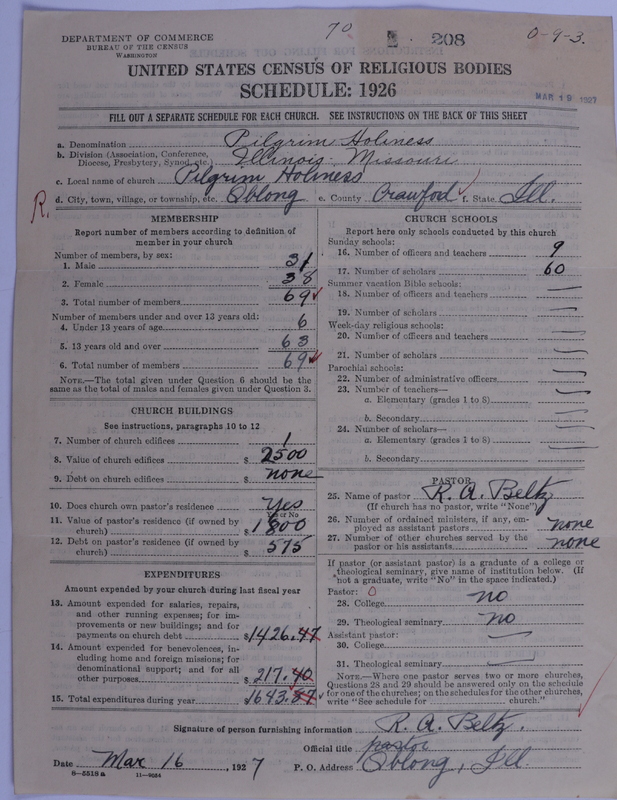 70
208
0-9-3.
DEPARTMENT OF COMMERCE
BUREAU OF THE CENSUS
WASHINGTON
UNITED STATES CENSUS OF RELIGIOUS BODIES
SCHEDULE: 1926
MAR 19 1927
FILL OUT A SEPARATE SCHEDULE FOR EACH CHURCH. SEE INSTRUCTIONS ON THE BACK OF THIS SHEET
a. Denomination Pilgrim Holiness
b. Division (Association, Conference, Diocese, Presbytery, Synod, etc.) Illinois-Missouri
c. Local name of church Pilgrim Holiness
R. d. City, town, village, or township, etc. Oblong e. County Crawford f. State Ill.
MEMBERSHIP
Report number of members according to definition of
member in your church
Number of members, by sex:
1. Male 31
2. Female 38
3. Total number of members 69
Number of members under and over 13 years old:
4. Under 13 years of age 6
5. 13 years old and over 63
6. Total number of members 69
NOTE.—The total given under Question 6 should be the
same as the total of males and females given under Question 3.
CHURCH BUILDINGS
See instructions, paragraphs 10 to 12
7. Number of church edifices 1
8. Value of church edifices $ 2500
9. Debt on church edifices $ none
10. Does church own pastor's residence Yes
Yes or No
11. Value of pastor's residence (if owned by
church) $ 1800
12. Debt on pastor's residence (if owned by
church) $ 575
EXPENDITURES
Amount expended by your church during last fiscal year
13. Amount expended for salaries, repairs,
and other running expenses; for im-
provements or new buildings; and for
payments on church debt $ 1426.47
14. Amount expended for benevolences, in-
cluding home and foreign missions; for
denominational support; and for all
other purposes $ 217.40
15. Total expenditures during year $ 1643.87
CHURCH SCHOOLS
Report here only schools conducted by this church
Sunday schools:
16. Number of officers and teachers 9
17. Number of scholars 60
Summer vacation Bible schools:
18. Number of officers and teachers —
19. Number of scholars —
Week-day religious schools:
20. Number of officers and teachers —
21. Number of scholars —
Parochial schools:
22. Number of administrative officers —
23. Number of teachers—
a. Elementary (grades 1 to 8) —
b. Secondary —
24. Number of scholars—
a. Elementary (grades 1 to 8) —
b. Secondary
PASTOR
25. Name of pastor R. A. Beltz
(If church has no pastor, write "None")
26. Number of ordained ministers, if any, em-
ployed as assistant pastors none
27. Number of other churches served by the
pastor or his assistants none
If pastor (or assistant pastor) is a graduate of a college or
theological seminary, give name of institution below. (If
not a graduate, write "No" in the space indicated.)
Pastor: 0
28. College no
29. Theological seminary no
Assistant pastor:
30. College —
31. Theological seminary —
NOTE.—Where one pastor serves two or more churches,
Questions 28 and 29 should be answered only on the schedule
for one of the churches; on the schedules for the other churches,
write "See schedule for church."
Signature of person furnishing information R. A. Beltz.
Official title pastor
Date Mar 16, 1927 P. O. Address Oblong, Ill.
8—5518 a 11—9034